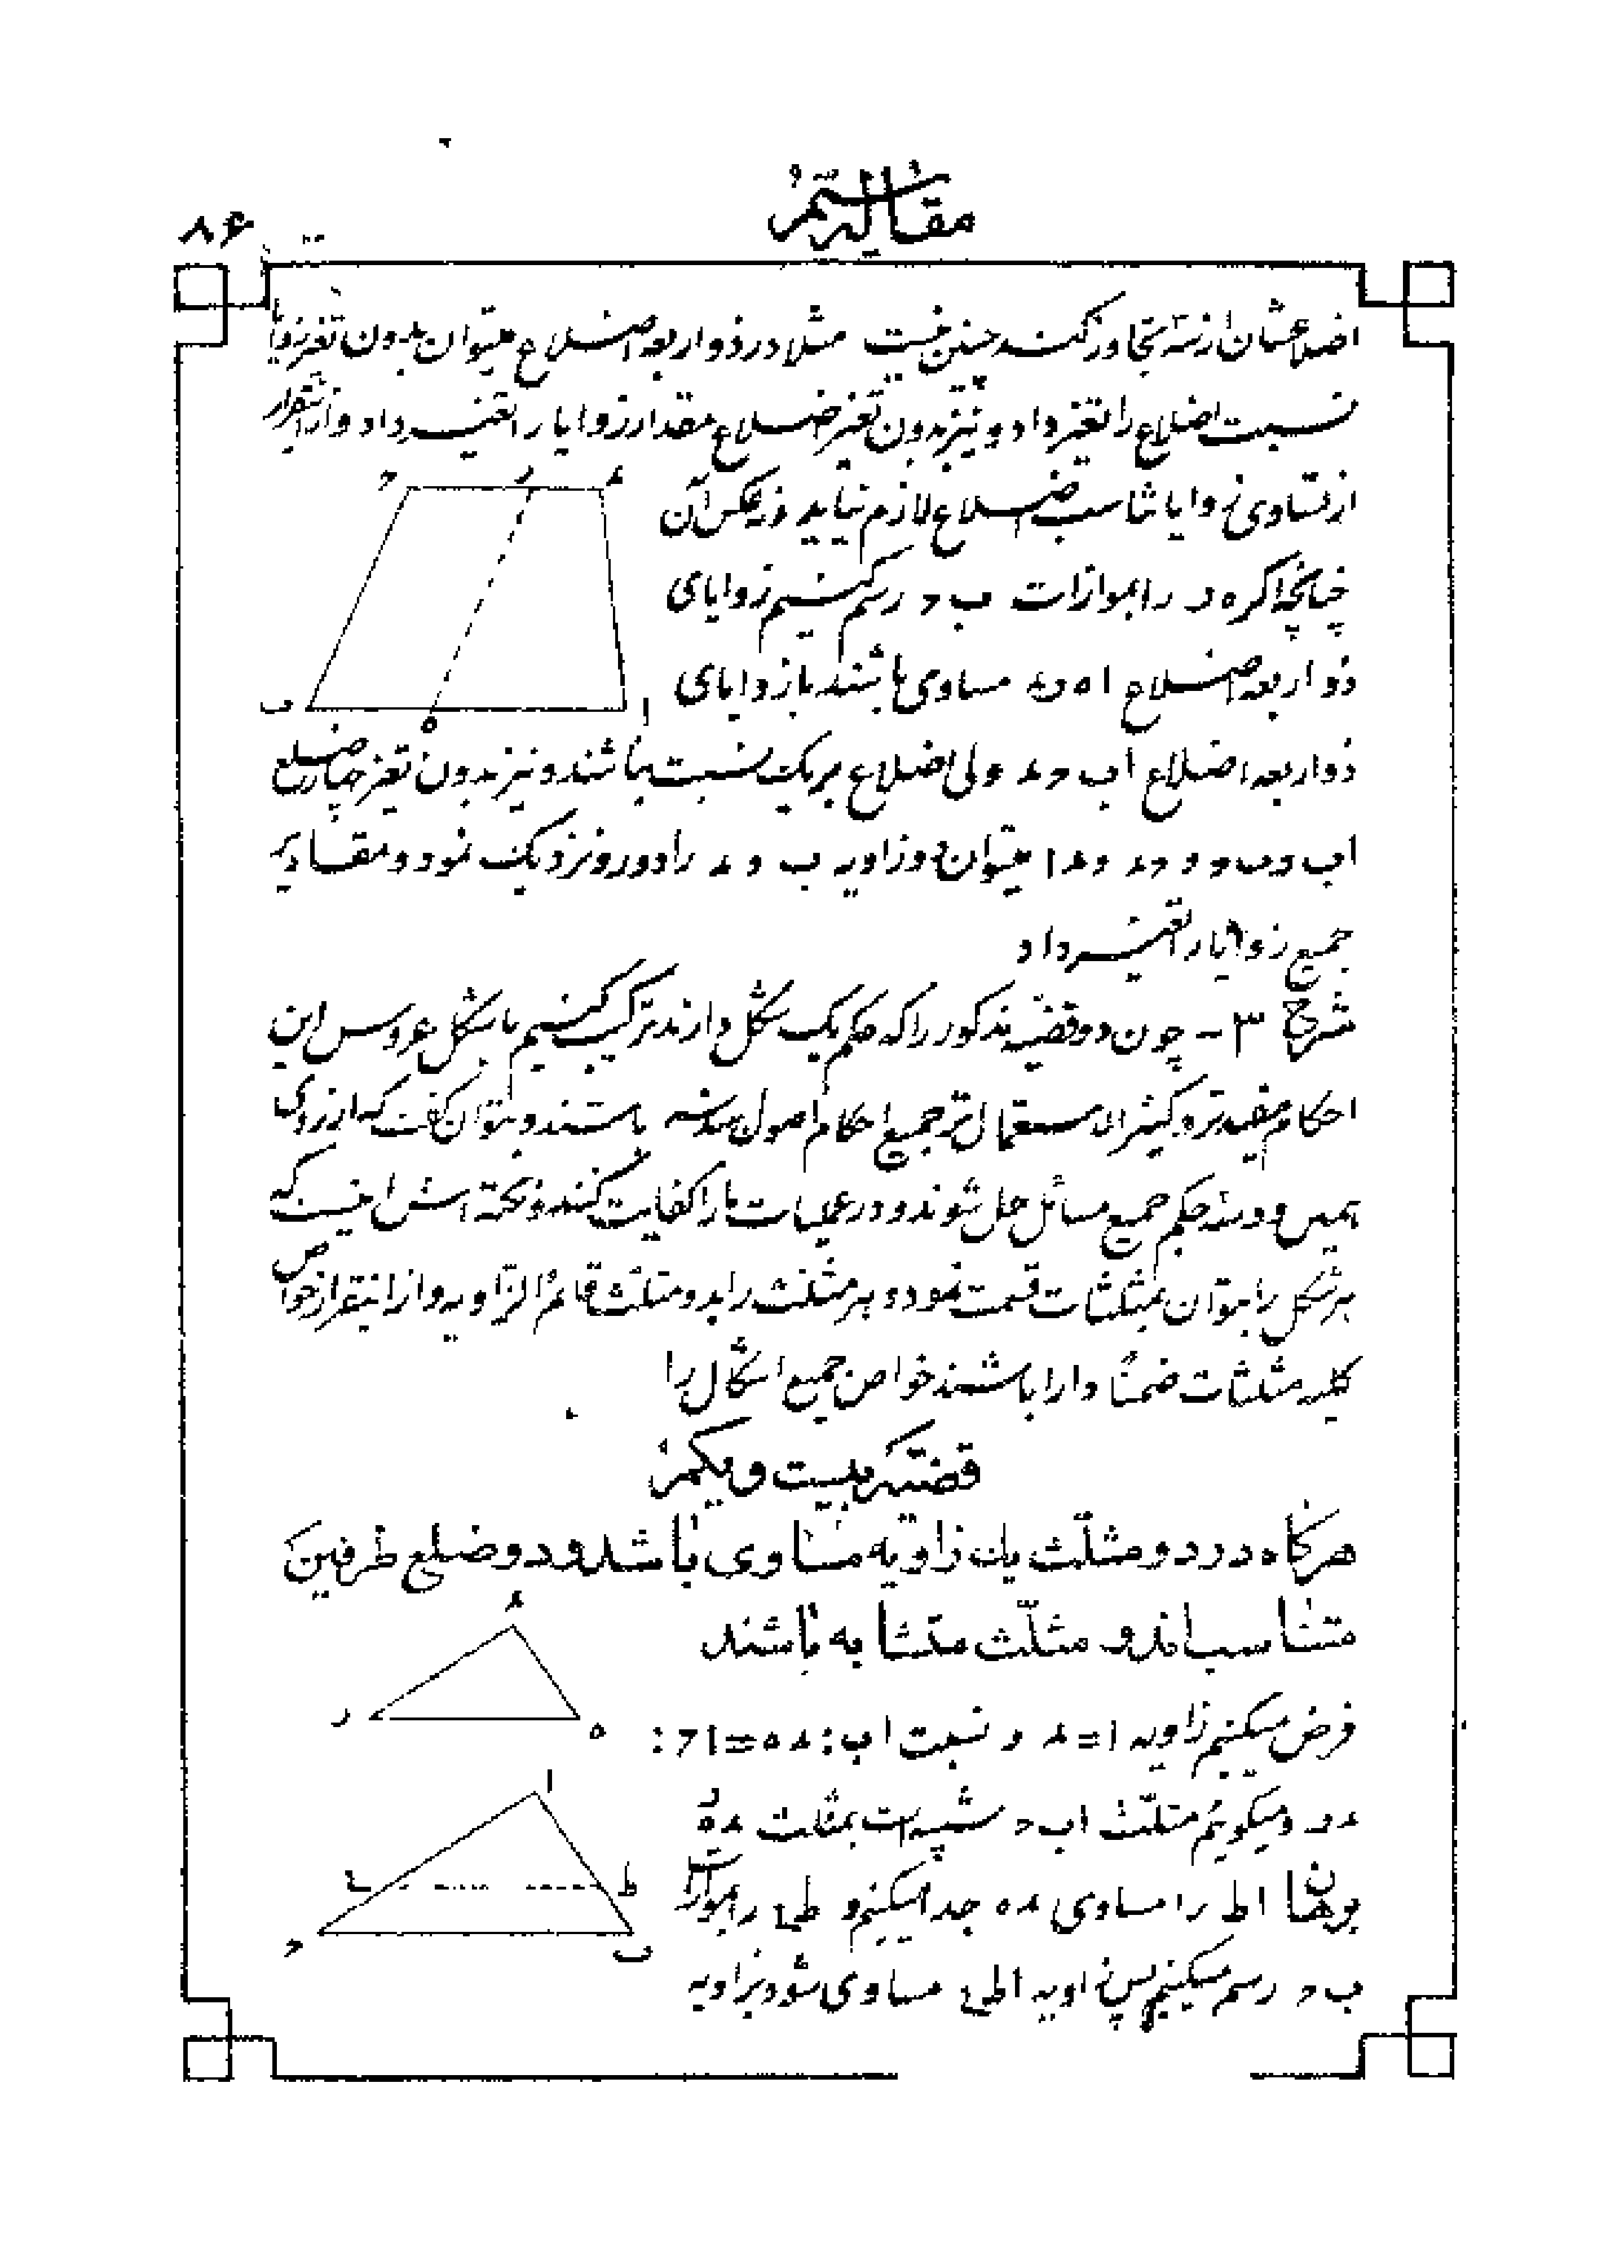 مقالۀ سیّم
۸۶
اضلاعشان از سه تجاوز کند چنین نیست مثلا در ذو اربعه اضلاع میتوان بدون تغیر زوایا
نسبت اضلاع را تغیر داد و نیز بدون تغیر اضلاع مقدار زوایا را تغییر داد و از اینقرار
از تساوی زوایا تناسب اضلاع لازم نیاید و نه عکس آن
چنانچه اگر ه ر را بموازات ب ح رسم کنیم زوایای
ذو اربعه اضلاع ا ه ر د مساوی باشند با زوایای
ذو اربعه اضلاع ا ب ح د ولی اضلاع بر یک نسبت نباشند و نیز بدون تغیر چهار ضلع
ا ب و ب ح و ح د و د ا میتوان دو زاویه ب و د را دور و نزدیک نمود و مقادیر
جمیع زوایا را تغییر داد
شرح ۳ – چون دو قضیه مذکور را که حکم یک شکل دارند ترکیب کنیم با شکل عروس این
احکام مفیدتر و کثیر الاستعمال‌تر جمیع احکام اصول هندسه باشند و بتوان گفت که از روی
همین دو سه حکم جمیع مسائل حل شوند و در عملیات ما را کفایت کنند و نکته اش اینست که
هر شکل را بتوان بمثلثات قسمت نمود و هر مثلث را بدو مثلث قائم الزاویه و از اینقرار خواص
کلیه مثلثات ضمناً دارا باشند خواص جمیع اشکال را
قضیّه بیست و یکم
هرگاه در دو مثلّث یک زاویه مساوی باشد و دو ضلع طرفین
متناسب اند دو مثلّث متشابه باشند
د
ر
ه
فرض میکنیم زاویه ا = د و نسبت ا ب : د ه = ا ح :
د ر و میگویم مثلّث ا ب ح شبیه است بمثلث د ه ر
برهان ا ط را مساوی د ه جدا میکنیم و ط ی را بموازات
ب ح رسم میکنیم پس زاویه ا ط ی مساوی شود بزاویه